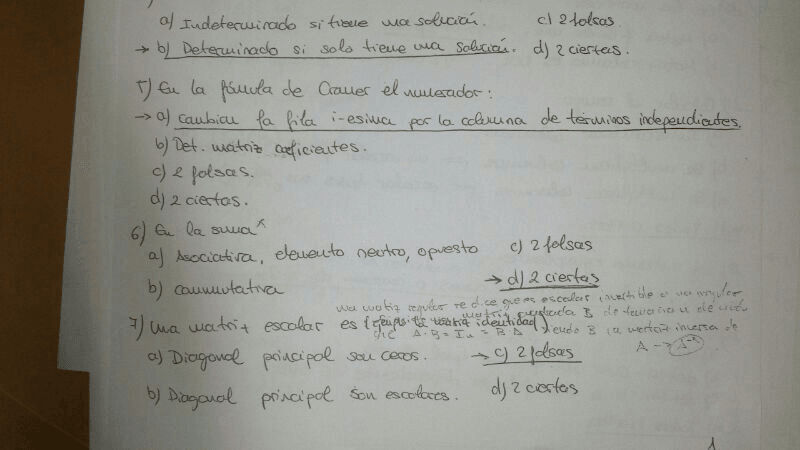 a) Indeterminado si tiene una solución. c) 2 falsas.
→ b) Determinado si solo tiene una solución. d) 2 ciertas.
5) En la fórmula de Cramer el numerador:
→ a) cambian la fila i-esima por la columna de terminos independientes.
b) Det. matriz coeficientes.
c) 2 falsas.
d) 2 ciertas.
6) En la suma
a) Asociativa, elemento neutro, opuesto c) 2 falsas
b) conmutativa → d) 2 ciertas
una matriz regular se dice que es escalar invertible o no singular
matriz cuadrada B de
7) Una matriz escalar es
A·B = In = B·A siendo B la matriz inversa de
A →
a) Diagonal principal son ceros. → c) 2 falsas
b) Diagonal principal son escalares. d) 2 ciertas